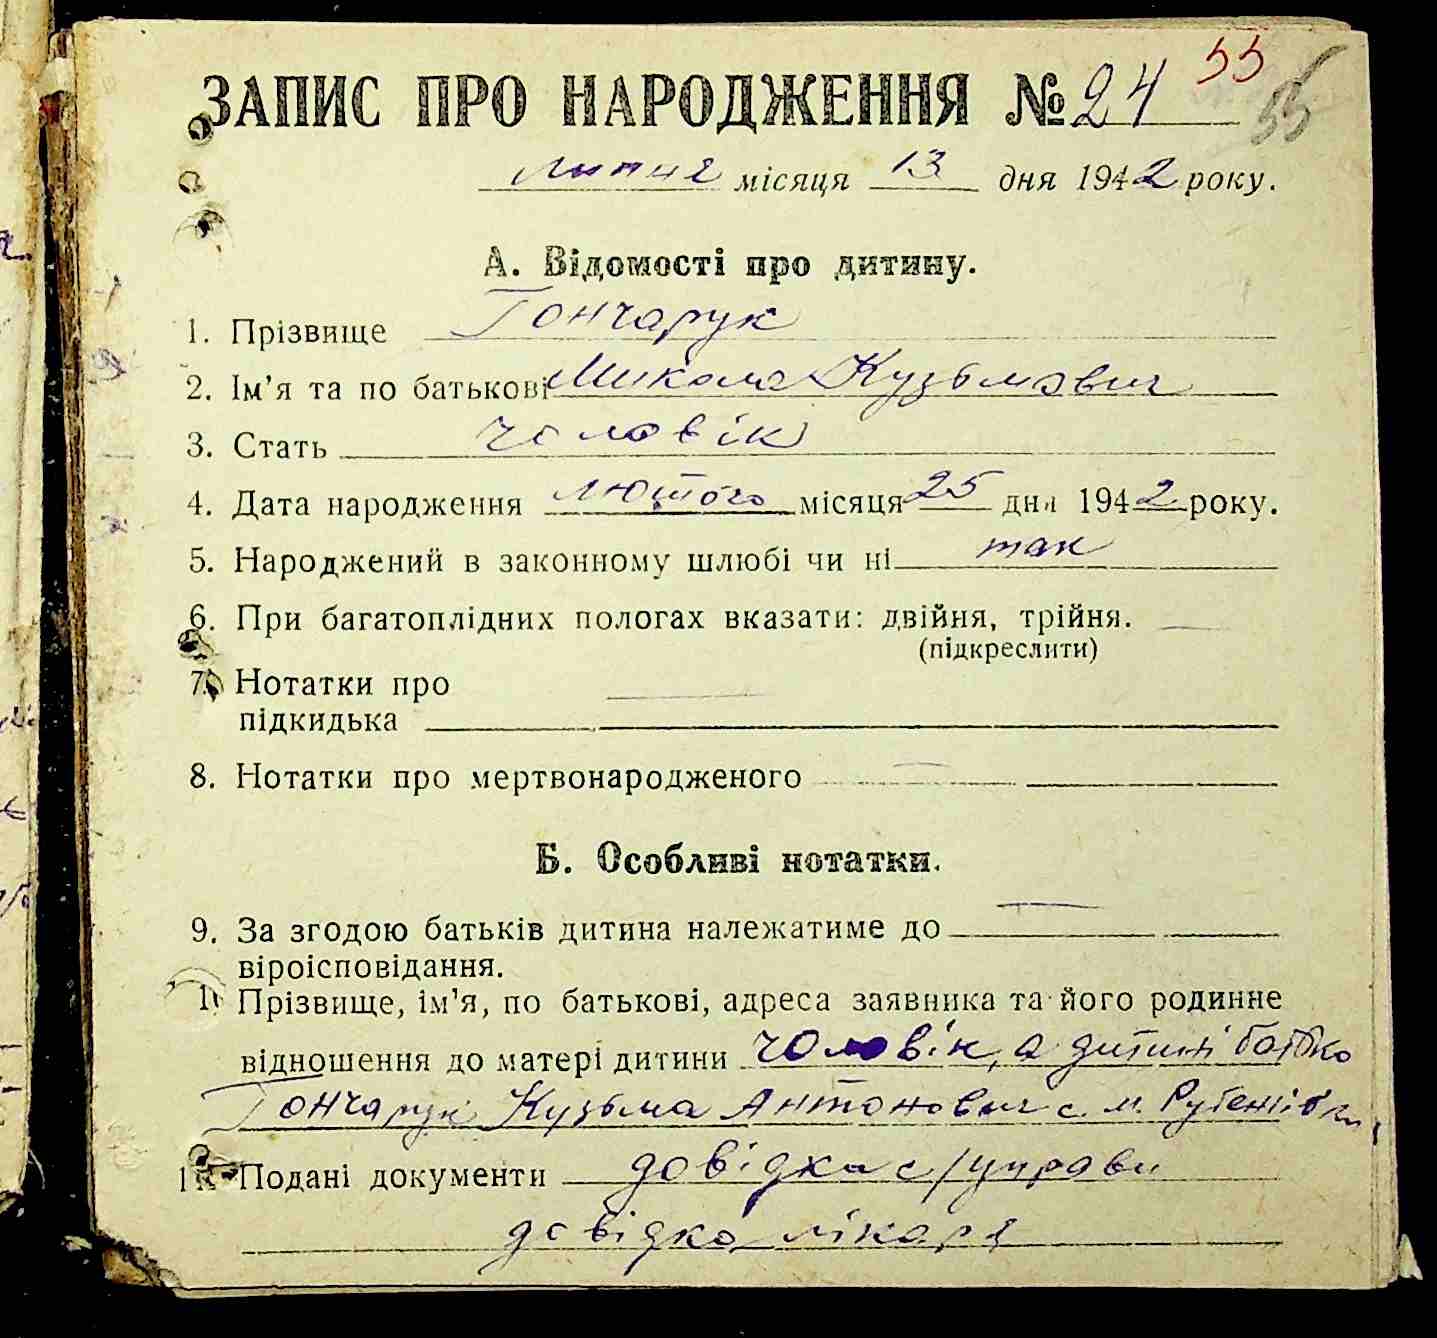 55
ЗАПИС ПРО НАРОДЖЕННЯ № 24 55
липня місяця 13 дня 1942 року.
А. Відомості про дитину.
1. Прізвище Гончарук
2. Ім'я та по батькові Микола Кузьмович
3. Стать чоловік
4. Дата народження лютого місяця 25 дня 1942 року.
5. Народжений в законному шлюбі чи ні так
6. При багатоплідних пологах вказати: двійня, трійня. —
(підкреслити)
7. Нотатки про —
підкидька
8. Нотатки про мертвонародженого —
Б. Особливі нотатки.
9. За згодою батьків дитина належатиме до —
віроісповідання.
10 Прізвище, ім'я, по батькові, адреса заявника та його родинне
відношення до матері дитини чоловік, а дитині батько
Гончарук Кузьма Антонович с. м.
11 Подані документи довідка с/управи
довідка лікаря